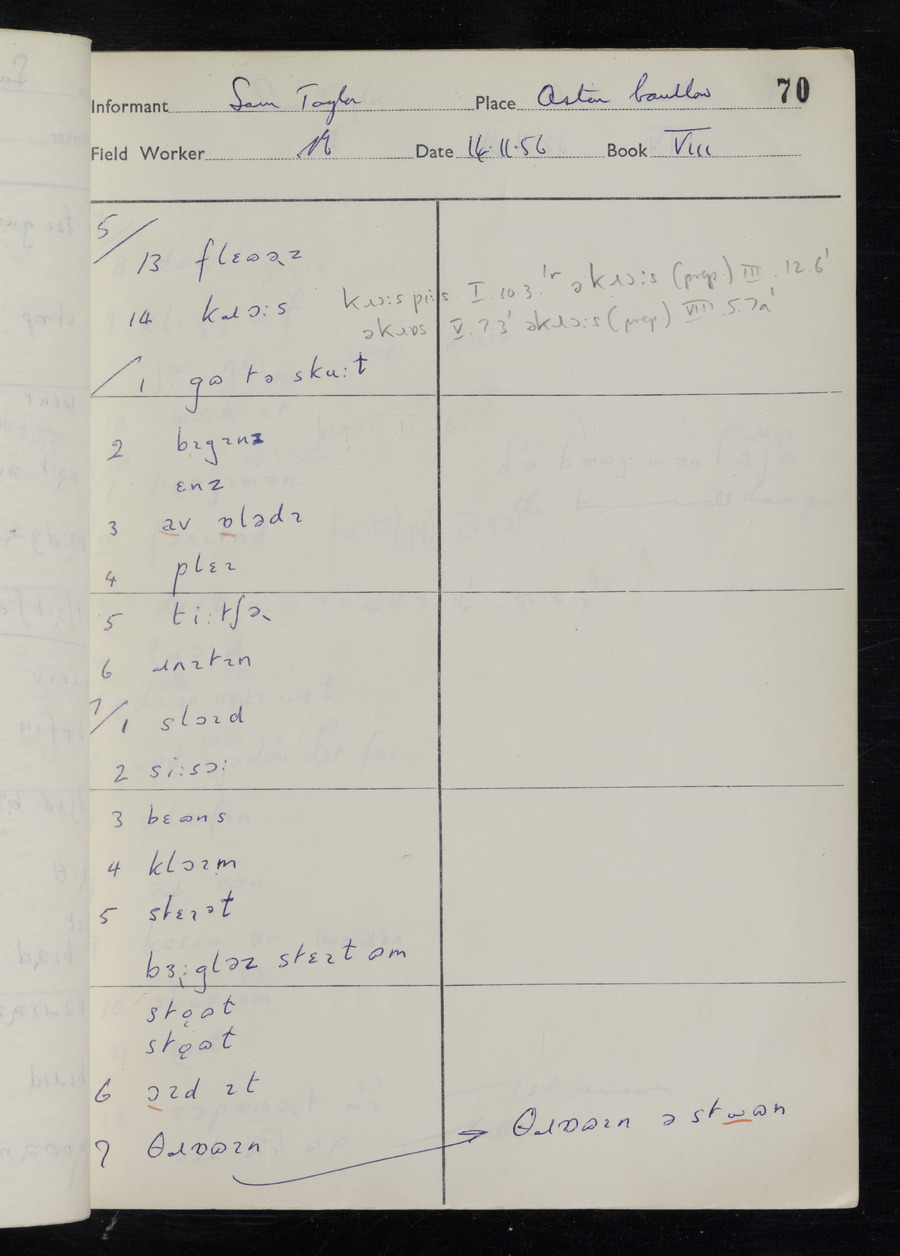 Informant Sam Taylor Place Aston Cantlow 70
Field Worker Date 14.11.56 Book VIII
5/13 flɛʊəɻz
14 kɹɔːs kɹɔːs piːs I.10.3.'r əkɹɔːs (prep.) III.12.6'
əkɹɒs V.7.3' əkɹɔːs (prep) VIII 5.7a'
/1 gʊ tə skuːt
2 bɪgɪnz
ɛnz
3 av ɒlədɪ
4 plɛɪ
5 tiːtʃəɻ
6 ɹnɪtɪn
7/1 slɔɪd
2 siːsɔː
3 bɛʊns
4 klɔɪm
5 stɛɪət
bɜːgləz stɛɪt ʊm
stǫʊt
stǫʊt
6 ɔɪd ɪt
7 θɹɒʊɪn θɹɒʊɪn ə stwʊn